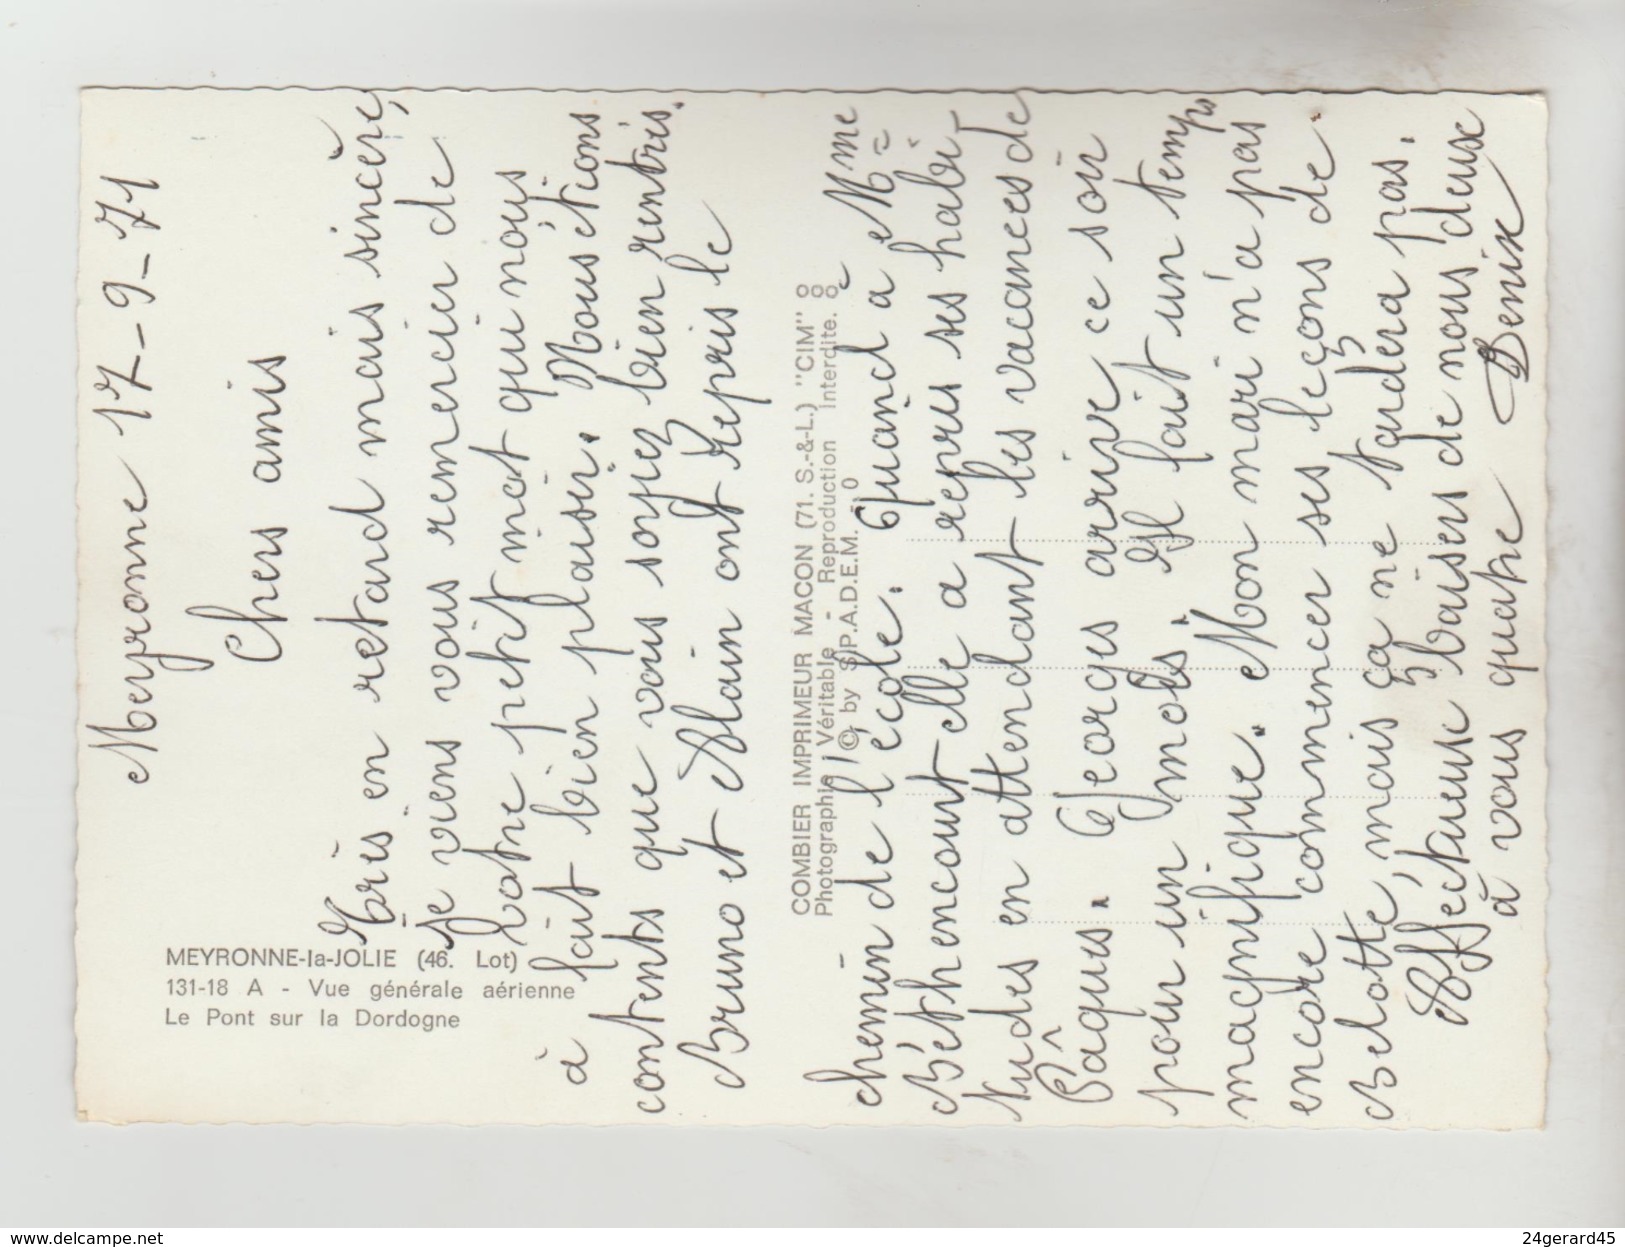 Meyronne 17-9-71
Chers amis
Très en retard mais sincère,
je viens vous remercier de
votre petit mot qui nous
à fait bien plaisir. Nous étions
contents que vous soyez bien rentrés.
Bruno et Alain ont repris le
chemin de l'école. Quand à Mme
Béthencourt elle a repris ses habi-
tudes en attendant les vacances de
Pâques. Georges arrive ce soir
pour un mois. Il fait un temps
magnifique. Mon mari n'a pas
encore commencer ses leçons de
Belotte, mais ça ne tardera pas.
Affectueux baisers de nous deux
à vous quatre
Denise
MEYRONNE-la-JOLIE (46. Lot)
131-18 A - Vue générale aérienne
Le Pont sur la Dordogne
COMBIER IMPRIMEUR MACON (71. S.-&-L.) "CIM"
Photographie Véritable - Reproduction interdite.
© by S.P.A.D.E.M.
www.delcampe.net
24gerard45